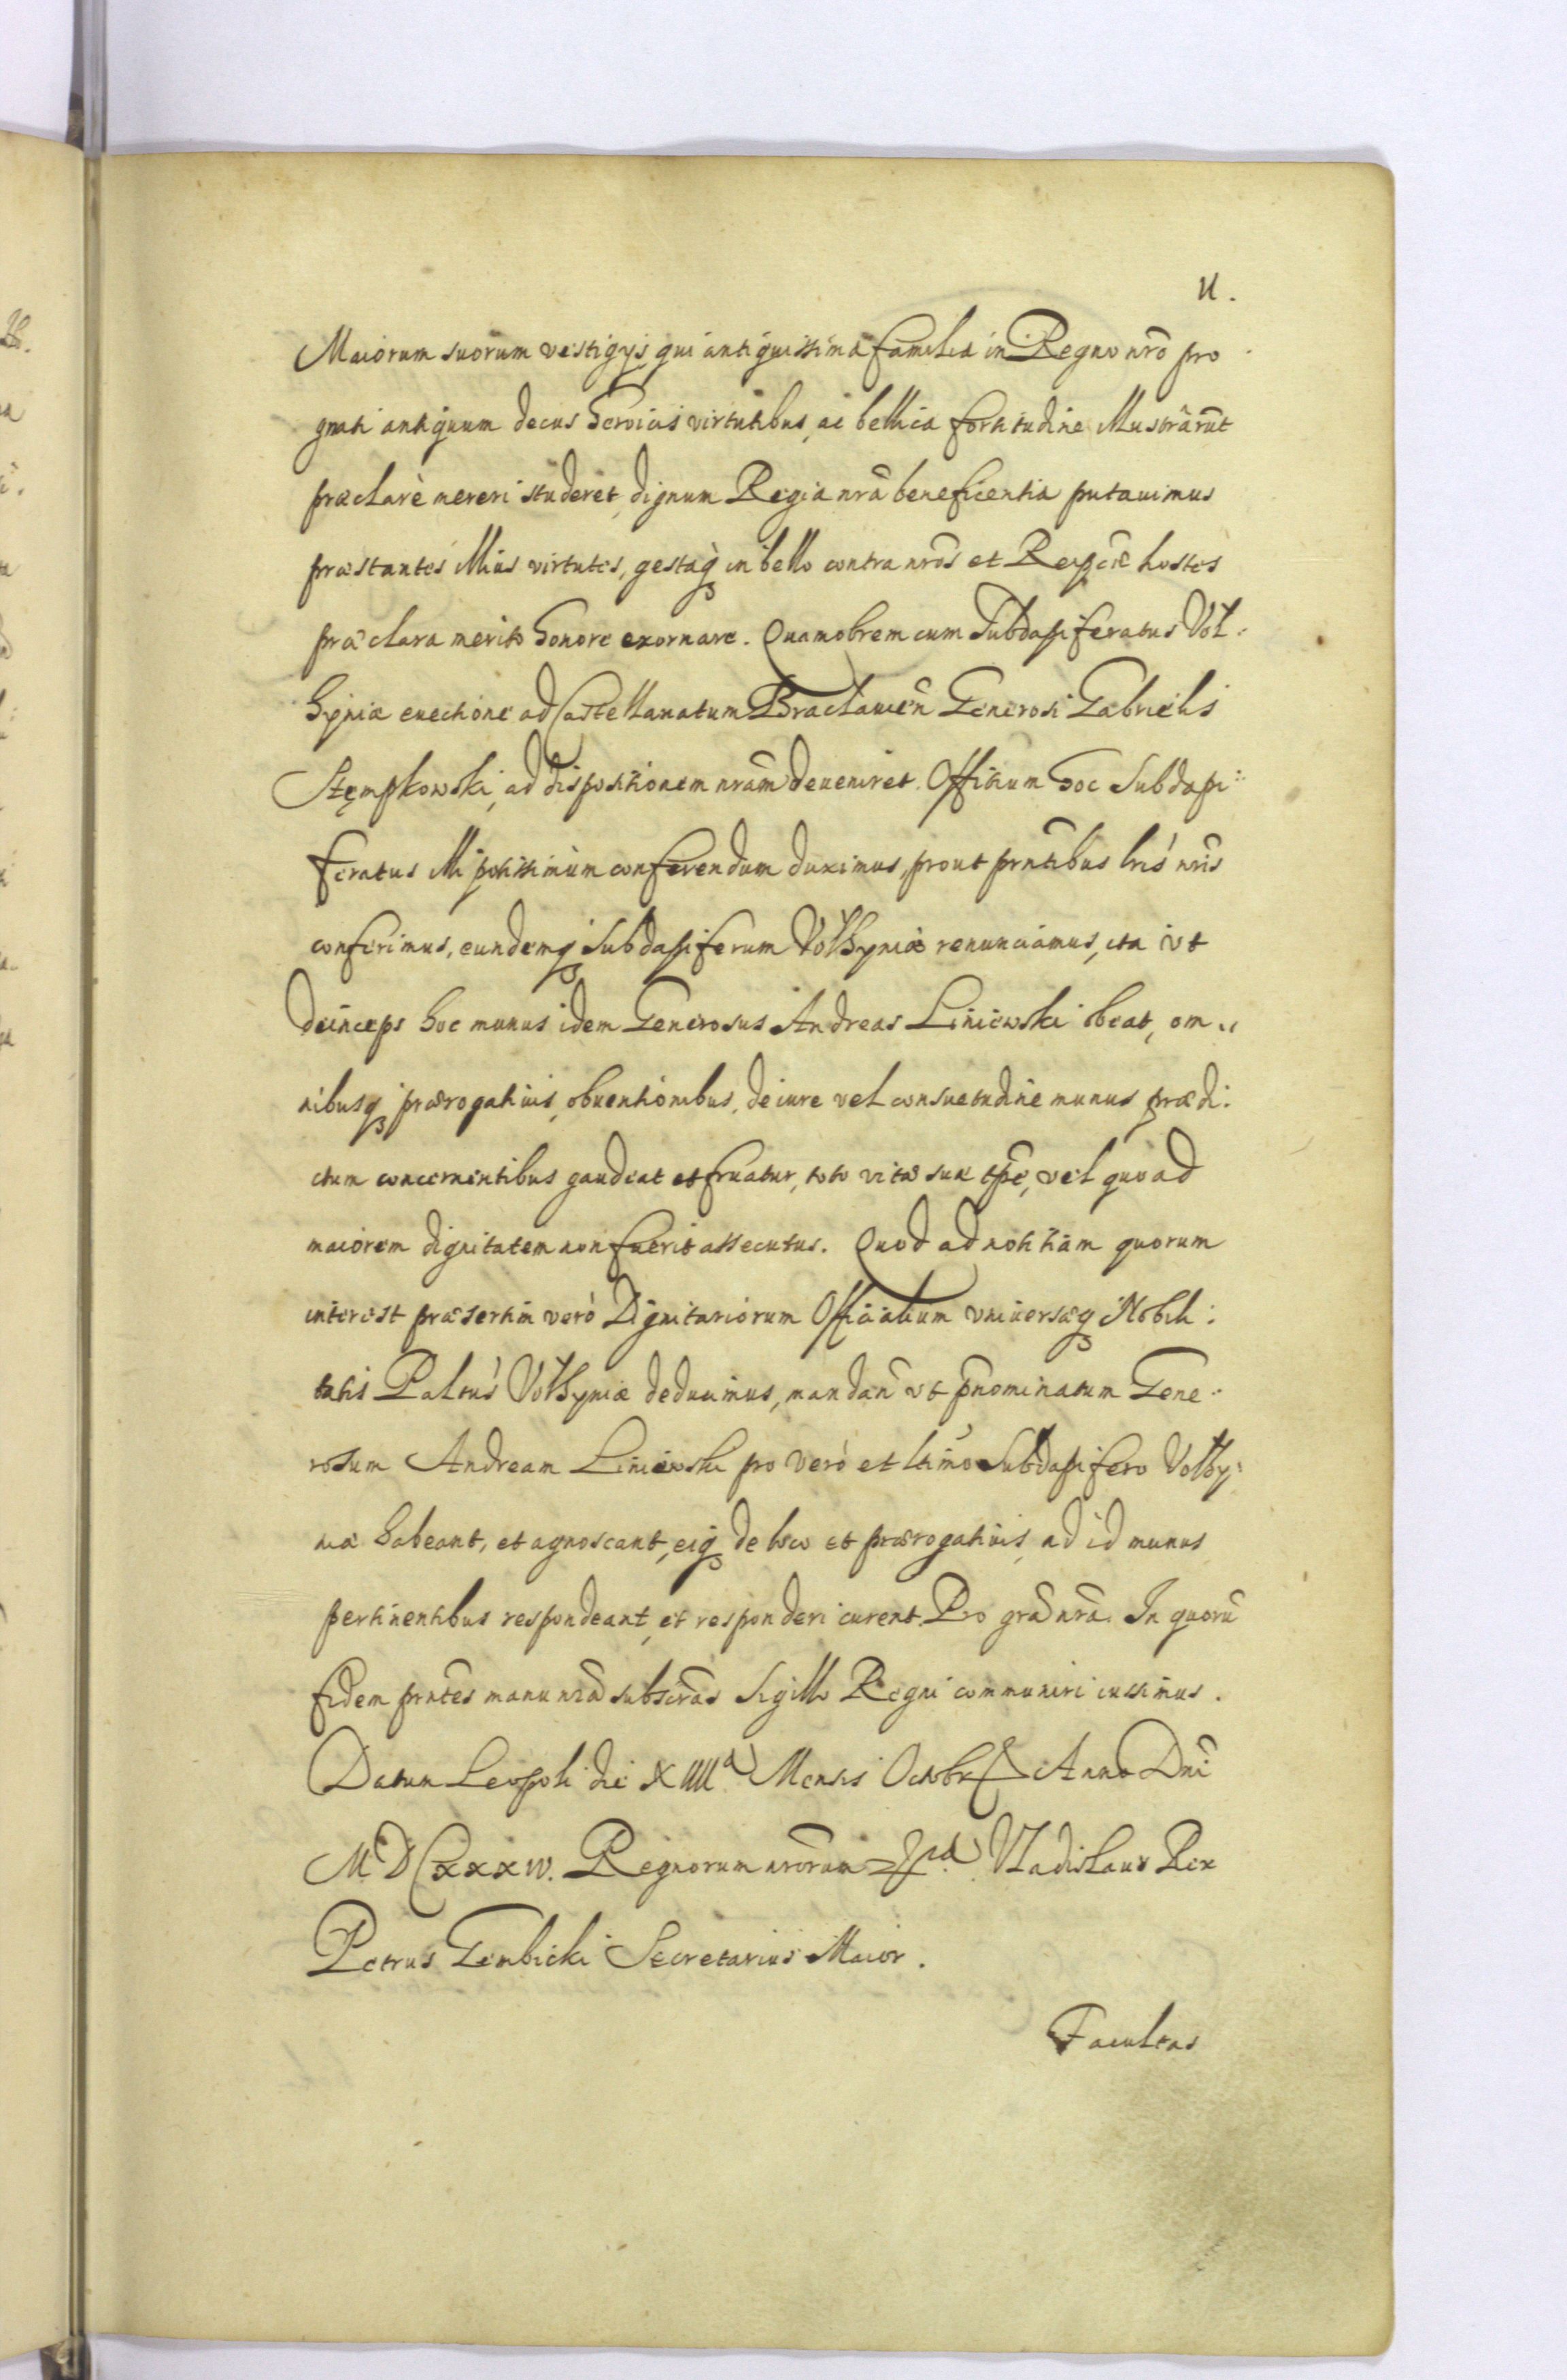 11.
Maiorum suorum vestigijs qui antiquissima familia in Regno nrõ pro
gnati antiquum decus heroicis virtutibus, ac bellica fortitudine illustrârũt
præclarè mereri studeret, dignum Regia nrã beneficentia putauimus
præstantes illius virtutes, gestaq; in bello contra nrõs et Reipcæ hostes
præclara merito honore exornare. Quamobrem cum Subdapiferatus Vol:
hyniæ euectione ad Castellanatum Braclauien̄ Generosi Gabrielis
Stęmpkowski, ad dispositionem nrãm deueniret. Officium hoc Subdapi:
feratus illi potissimùm conferendum duximus, prout prñtibus lris nris
conferimus, eundemq; Subdapiferum Volhyniæ renunciamus, ita vt
deinceps hoc munus idem Generosus Andreas Liniewski obeat, om„
nibusq; prærogatiuis, obuentionibus, de iure vel consuetudine munus prædi:
ctum concernentibus gaudeat et fruatur, toto vitæ suæ tp̃e, vel quoad
maiorem dignitatem non fuerit assecutus. Quod ad notitiam quorum
interest præsertim verò Dignitariorum Officialium vniuersæq; Nobili:
tatis Paltus Volhyniæ deducimus, mandañ vt p̃nominatum Gene:
rosum Andream Liniewski pro vero et ltimo Subdapifero Volhy:
niæ habeant, et agnoscant, eiq; de loco et prærogatiuis, ad id munus
pertinentibus respondeant, et responderi curent. Pro grã nrã. In quorũ
fidem prñtes manu nrã subscrãs Sigillo Regni communiri iussimus.
Datum Leopoli die XIIIIa Mensis Octobr Anno Dni
MDCxxxiv. Regnorum nrõrum 2da Vladislaus Rex
Petrus Gembicki Secretarius Maior.
Facultas